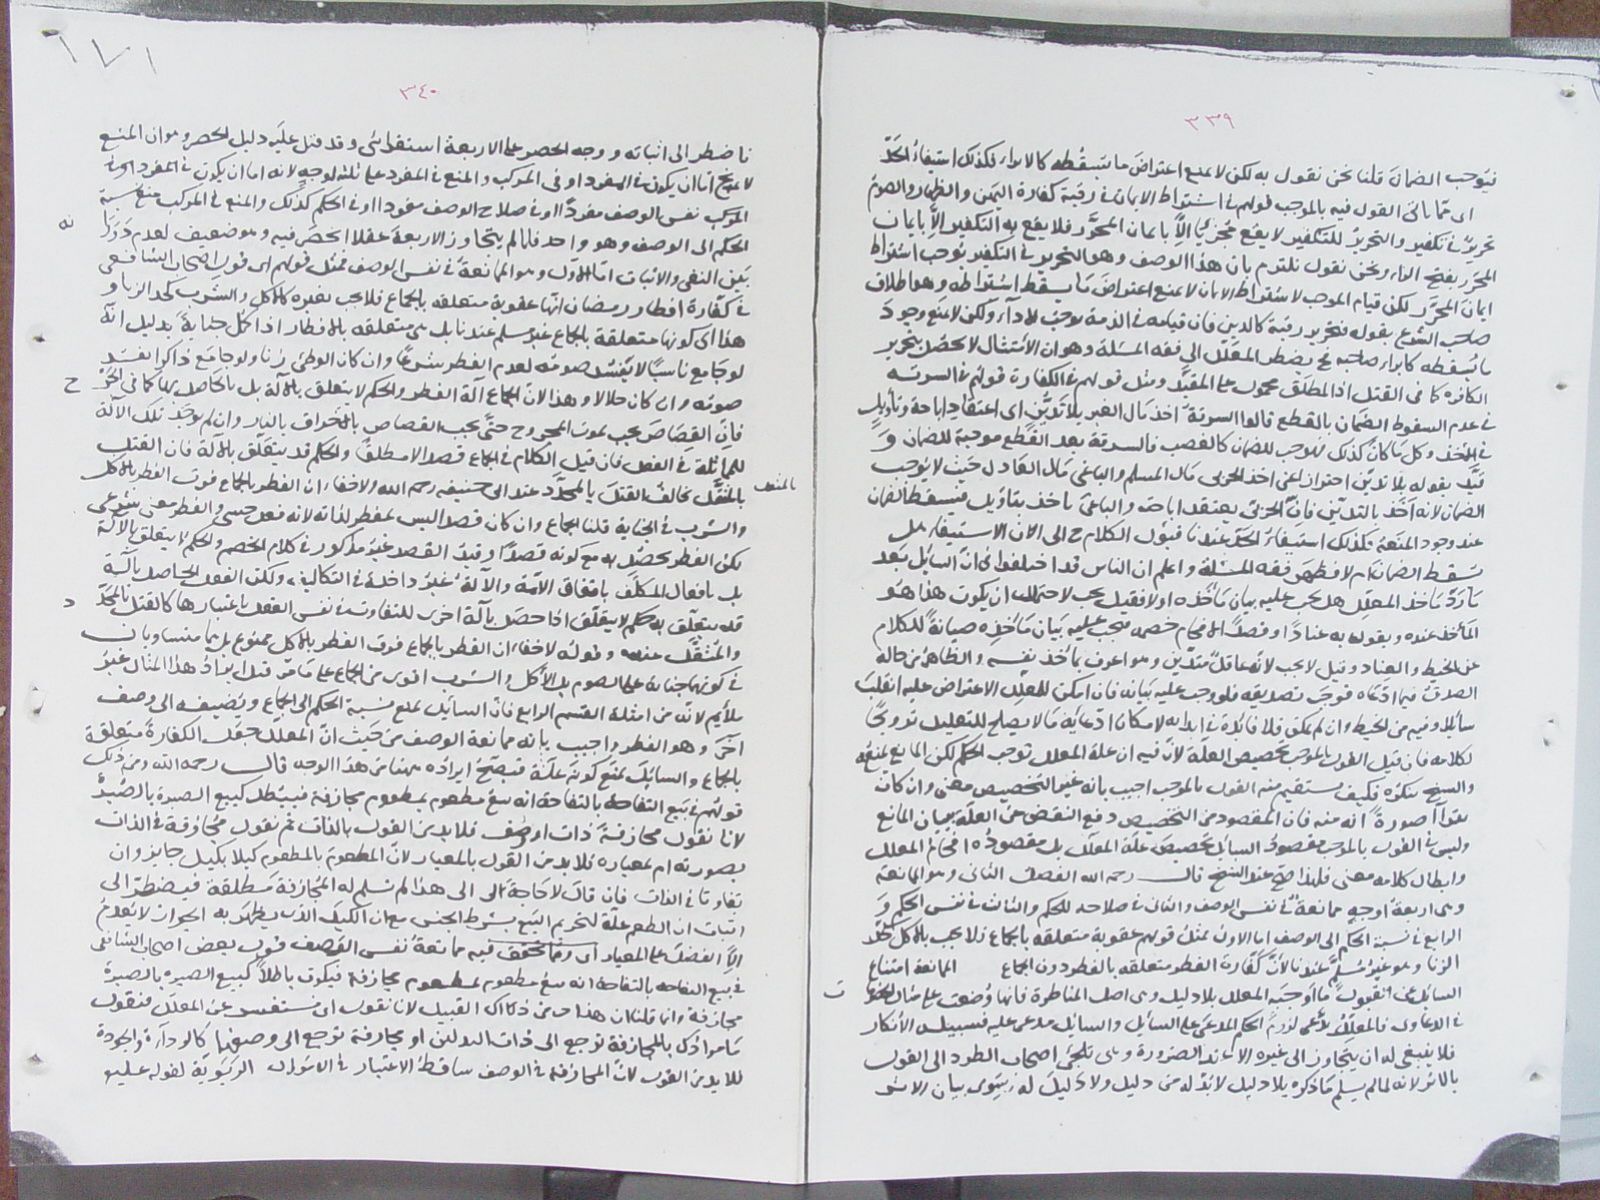 ٣٣٩
فيوجب الضمان قلنا نحن نقول به لكن لا يمنع اعتراض ما يسقطه كالابراء فكذلك استيفاء الحد
الى مما يأتى القول فيه بالموجب قولهم فى اشتراط الايمان فى رقبة كفارة اليمين والظهار والصوم
تحرير فى تكفير والتحرير للتكفير لا يقع مجزيا الا بايمان المحرر فلا يقع به التكفير الا بايمان
المحرر بفتح الراء ونحن نقول نلتزم بان هذا الوصف وهو التحرير فى التكفير يوجب اشتراط
ايمان المحرر لكن قيام الموجب لاشتراط الايمان لا يمنع اعتراض ما يسقط اشتراطه وهو اطلاق
صاحب الشرع بقوله فتحرير رقبة كالدين فان قيامه فى الذمة يوجب الاداء ولكن لا يمنع وجود
ما يسقطه كابراء صاحبه ثم يضطر المعلل الى فقه المسئلة وهو ان الامتثال لا يحصل بتحرير
الكافرة كما فى القتل اذ المطلق محمول على المقيد ومثل قولهم فى الكفارة قولهم فى السرقة
فى عدم السقوط الضمان بالقطع قالوا السرقة اخذ مال الغير بلا تدين اى اعتقاد اباحة وتأويل
فى الاخذ وكل ما كان كذلك يوجب للضمان كالغصب فالسرقة بعد القطع موجبة للضمان و
قيد بقوله بلا تدين احترازا عن اخذ الحربى مال المسلم والباغى مال العادل حيث لا يوجب
الضمان لانه اخذ بالتدين فان الحربى يعتقد اباحته والباغى ياخذ بتاويل فيسقط الضمان
عند وجود المنعة وكذلك استيفاء الحد عندنا فيؤل الكلام ح الى ان الاستيفاء هل
يسقط الضمان ام لا فظهر فقه المسئلة واعلم ان الناس قد اختلفوا فى ان السائل بعد
ما رد ماخذ المعلل هل يجب عليه بيان مأخذه او لا فقيل يجب لاحتمال ان يكون هذا هو
المأخذ عنده ويقول به عنادا او قصدا لافحام خصمه فيجب عليه بيان مأخذه صيانة للكلام
عن الخبط والعناد وقيل لا يجب لانه عاقل متدين وهو اعرف بمأخذ نفسه والظاهر من حاله
الصدق فيما ادعاه فوجب تصديقه فلو وجب عليه بيانه فان امكن للمعلل الاعتراض عليه انقلب
سائلا وفيه من الخبط وان لم يمكن فلا فائدة فى ابدائه لامكان ادعائه ما لا يصلح للتعليل ترويجا
لكلامه فان قيل القول بالموجب تخصيص العلة لان فيه ان علة المعلل توجب الحكم لكن المانع يمنعه
والشيخ ينكره فكيف يستقيم منه القول بالموجب اجيب بانه غير التخصيص معنى وان كان
صورة انه منه فان المقصود من التخصيص دفع النقض عن العلة ببيان المانع
وليس فى القول بالموجب مقصود السائل تخصيص علة المعلل بل مقصوده افحام المعلل
وابطال كلامه معنى فلهذا صح عند الشيخ قال رحمه الله الفصل الثانى وهو الممانعة
وهى اربعة اوجه ممانعة فى نفس الوصف والثانى فى صلاحه للحكم والثالث فى نفس الحكم و
الرابع فى نسبة الحكم الى الوصف اما الاول فمثل قولهم عقوبة متعلقة بالجماع فلا يجب بالاكل كحد
الزنا وهو غير مسلم عندنا لان كفارة الفطر متعلقة بالفطر دون الجماع الممانعة امتناع
السائل عن قبول ما اوجبه المعلل بلا دليل وهى اصل المناظرة فانها وضعت على مثال الخصومات
فى الدعاوى فالمعلل يدعى لزوم الحكم المدعى على السائل والسائل مدعى عليه فسبيله الانكار
فلا ينبغى له ان يتجاوز الى غيره الا عند الضرورة وهى تلجئ اصحاب الطرد الى القول
بالاثر لانه لما لم يسلم ما ذكره بلا دليل لا بد له من دليل ولا دليل له سوى بيان الاثر
١٧١
٣٤٠
فاضطر الى اثباته ووجه الحصر على الاربعة استقرائى وقد قيل عليه دليل الحصر وهو ان المنع
لا يخ اما ان يكون فى المفرد او فى المركب والمنع فى المفرد على ثلثة اوجه لانه اما ان يكون فى المفرد الذى
المركب نفس الوصف مفردا او فى صلاح الوصف مفردا او فى الحكم كذلك والمنع فى المركب منع نسبة
الحكم الى الوصف وهو واحد فلما لم يتجاوز الاربعة عقلا انحصر فيه وهو ضعيف لعدم دورانه
بين النفى والاثبات اما الاول وهو الممانعة فى نفس الوصف فمثل قولهم اى قول اصحاب الشافعى
فى كفارة افطار رمضان انها عقوبة متعلقة بالجماع فلا يجب بغيره كالاكل والشرب كحد الزنا و
هذا اى كونها متعلقة بالجماع غير مسلم عندنا بل هى متعلقة بالافطار اذا كمل جناية بدليل انه
لو جامع ناسيا لا يفسد صومه لعدم الفطر شرعا وان كان الوطئ زنا ولو جامع ذاكرا يفسد
صومه وان كان حلالا وهذا لان الجماع آلة الفطر والحكم لا يتعلق بالآلة بل بالحاصل بها كما فى الجرح
فان القصاص يجب بموت المجروح حتى يجب القصاص بالاحراق بالنار وان لم يوجد تلك الآلة
للمماثلة فى الفعل فان قيل الكلام فى الجماع قصدا لا مطلقا والحكم قد يتعلق بالآلة فان القتل
بالمثقل يخالف القتل بالمحدد عند ابى حنيفة رحمه الله ولا خفاء ان الفطر بالجماع فوق الفطر بالاكل
والشرب فى الجناية قلنا الجماع وان كان قصدا ليس بمفطر لذاته لانه فعل حسى والفطر معنى شرعى
لكن الفطر يحصل به مع كونه قصدا وقيد القصد غير مذكور فى كلام الخصم والحكم لا يتعلق بالآلة
بل بافعال المكلف باتفاق الامة والآلة غير داخلة فى التكاليف ولكن الفعل الحاصل بآلة
قد يتعلق به حكم لا يتعلق اذا حصل بآلة اخرى للتفاوت فى نفس الفعل باعتبارها كالقتل بالمحدد
والمثقل عنده وقوله لا خفاء ان الفطر بالجماع فوق الفطر بالاكل ممنوع بل هما متساويان
فى كونهما جناية على الصوم بل الاكل والشرب اقوى من الجماع على ما مر قيل ايراد هذا المثال غير
ملايم لانه من امثلة القسم الرابع فان السائل يمنع نسبة الحكم الى الجماع ويضيفه الى وصف
آخر وهو الفطر واجيب بانه ممانعة الوصف من حيث ان المعلل جعل الكفارة متعلقة
بالجماع والسائل يمنع كونه علة فيصح ايراده ههنا من هذا الوجه قال رحمه الله ومن ذلك
قولهم فى بيع التفاحة بالتفاحة انه بيع مطعوم بمطعوم مجازفة فيبطل كبيع الصبرة بالصبرة
لانا نقول مجازفة ذات او وصف فلا بد من القول بالذات ثم نقول مجازفة فى الذات
بصورته ام بمعياره فلا بد من القول بالمعيار لان المطعوم بالمطعوم كيلا بكيل جايز وان
تفاوتا فى الذات فان قال لا حاجة لى الى هذا لم نسلم له المجازفة مطلقة فيضطر الى
اثبات ان الطعم علة لتحريم البيع بشرط الجنس مع ان الكيل الذى يظهر به الجواز لا يعدم
الا الفضل على المعيار اى ومما تحقق فيه ممانعة نفس الوصف قول بعض اصحاب الشافعى
فى بيع التفاحة بالتفاحة انه بيع مطعوم بمطعوم مجازفة فيكون باطلا كبيع الصبرة بالصبرة
مجازفة وانما قلنا ان هذا من ذلك القبيل لانا نقول اى نستفسر عن المعلل فنقول
ما مرادك بالمجازفة ترجع الى ذات البدلين او مجازفة ترجع الى وصفهما كالرداءة والجودة
فلا بد من القول لان المجازفة فى الوصف ساقط الاعتبار فى الاموال الربوية لقوله عليه